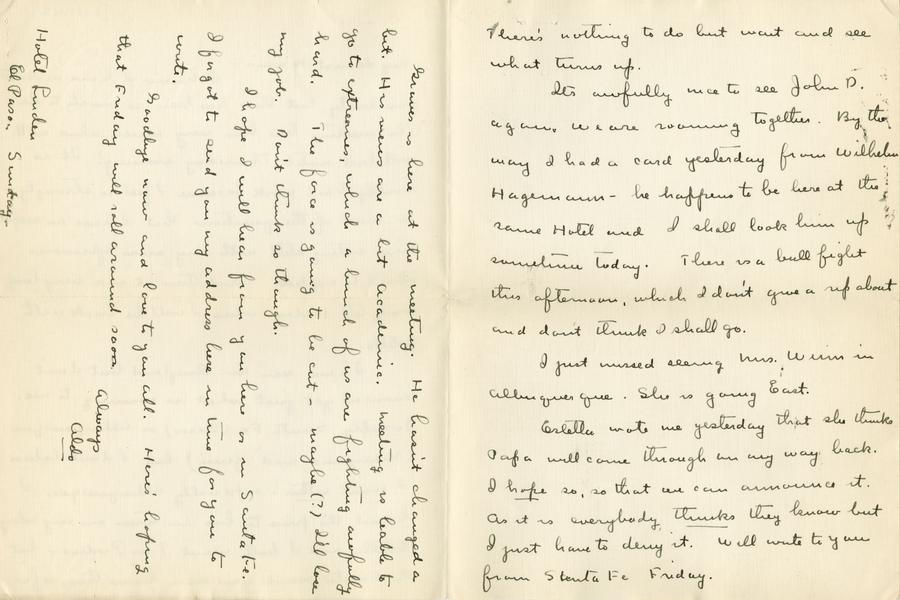 There's nothing to do but wait and see
what turns up.
Its awfully nice to see John D.
again. We are rooming together. By the
way I had a card yesterday from Wilhelm
Hagemann - he happens to be here at the
same Hotel and I shall look him up
sometime today. There is a bull fight
this afternoon, which I don't give a rip about
and don't think I shall go.
I just missed seeing Mrs. Winn in
Albuquerque. She is going East.
Estella wrote me yesterday that she thinks
Papa will come through on my way back.
I hope so, so that we can announce it.
As it is everybody thinks they know but
I just have to deny it. Will write to you
from Santa Fe Friday.
Graves is here at the meeting. He hasn't changed a
bit. His men are a bit academic. Meeting is liable to
go to extremes, which a bunch of us are fighting awfully
hard. The force is going to be cut - maybe (?) I'll lose
my job. Don't think so though.
I hope I will hear from you here or in Santa Fe.
I forgot to send you my address here in time for you to
write.
Goodbye now and love to you all. Here's hoping
that Friday will roll around soon.
Always
Aldo
Hotel Linden
El Paso. Sunday.